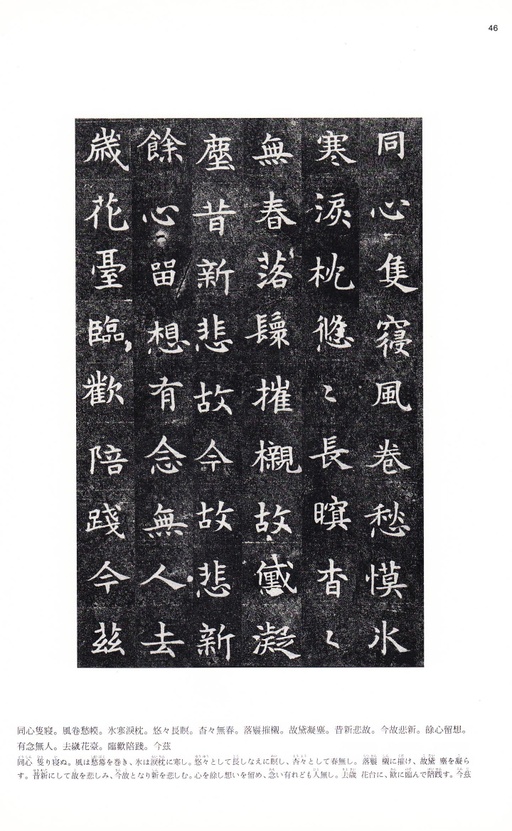 46
同心隻寢風卷愁慔氷
寒淚枕悠〻長暝杳〻
無春落鬟摧櫬故黛凝
塵昔新悲故今故悲新
餘心留想有念無人去
歳花臺臨歡陪踐今茲
同心隻寢。風卷愁幙。氷寒淚枕。悠々長暝。杳々無春。落鬟摧櫬。故黛凝塵。昔新悲故。今故悲新。餘心留想。
有念無人。去歲花臺。臨歡陪踐。今茲
同心隻り寢ぬ。風は愁幕を卷き、氷は淚枕に寒し。悠々として長しなえに暝し、杳々として春無し。落鬟櫬に摧け、故黛塵を凝ら
す。昔新にして故を悲しみ、今故となり新を悲しむ。心を餘し想いを留め、念い有れども人無し。去歲花台に、歡に臨んで陪踐す。今茲